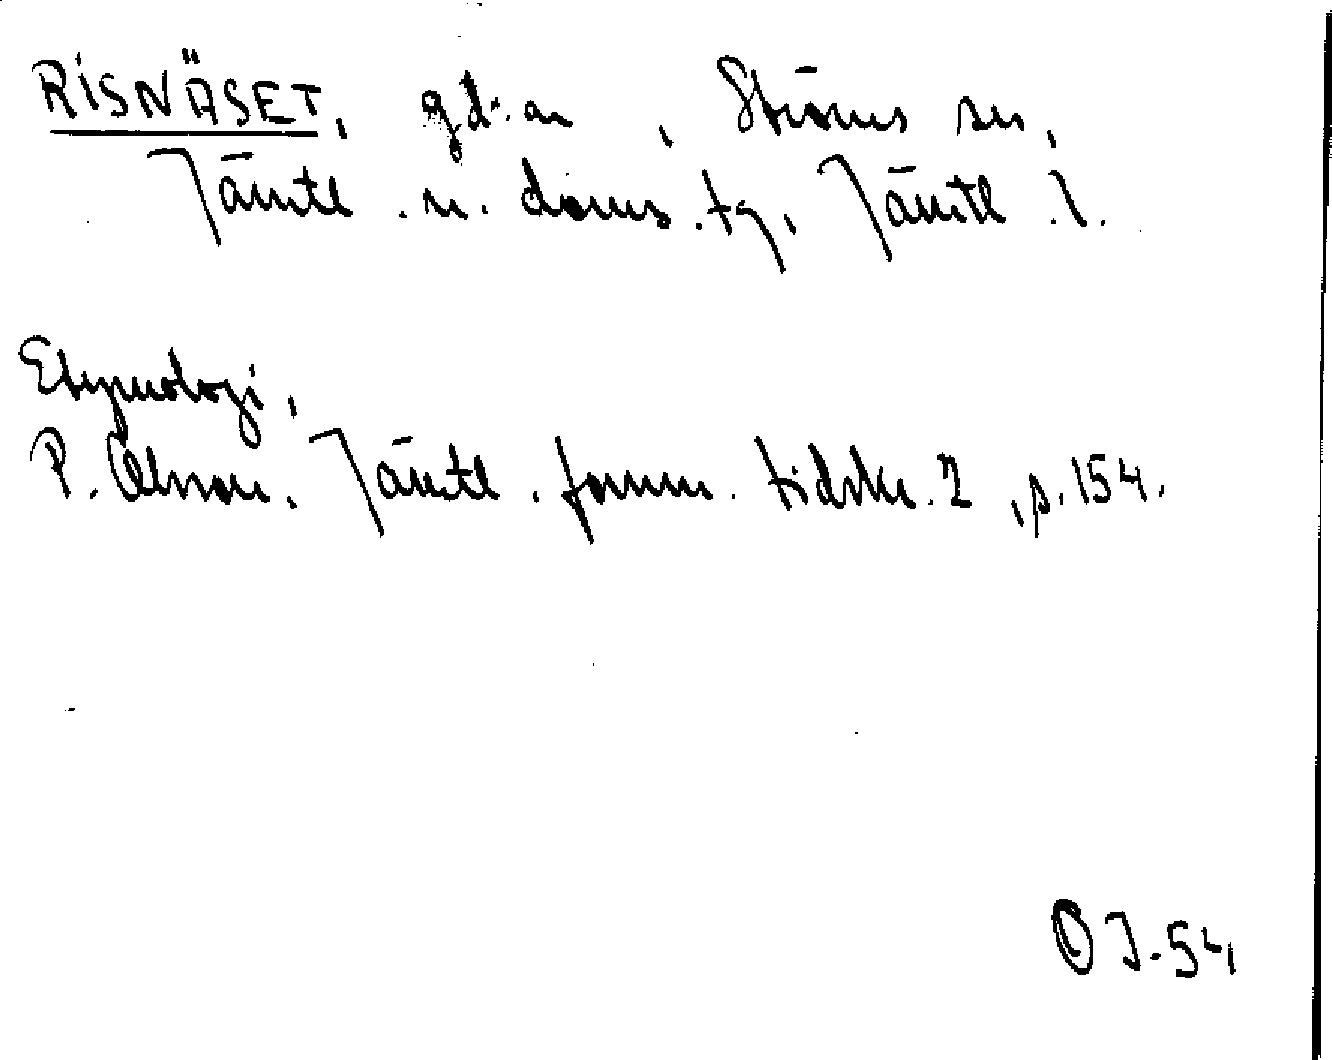 RISNÄSET, gd:ar, Ströms sn,
Jämtl. n. doms. tg, Jämtl. l.
Etymologi,
P. Olsson. Jämtl. fornm. tidskr. 2, p. 154.
OJ-54